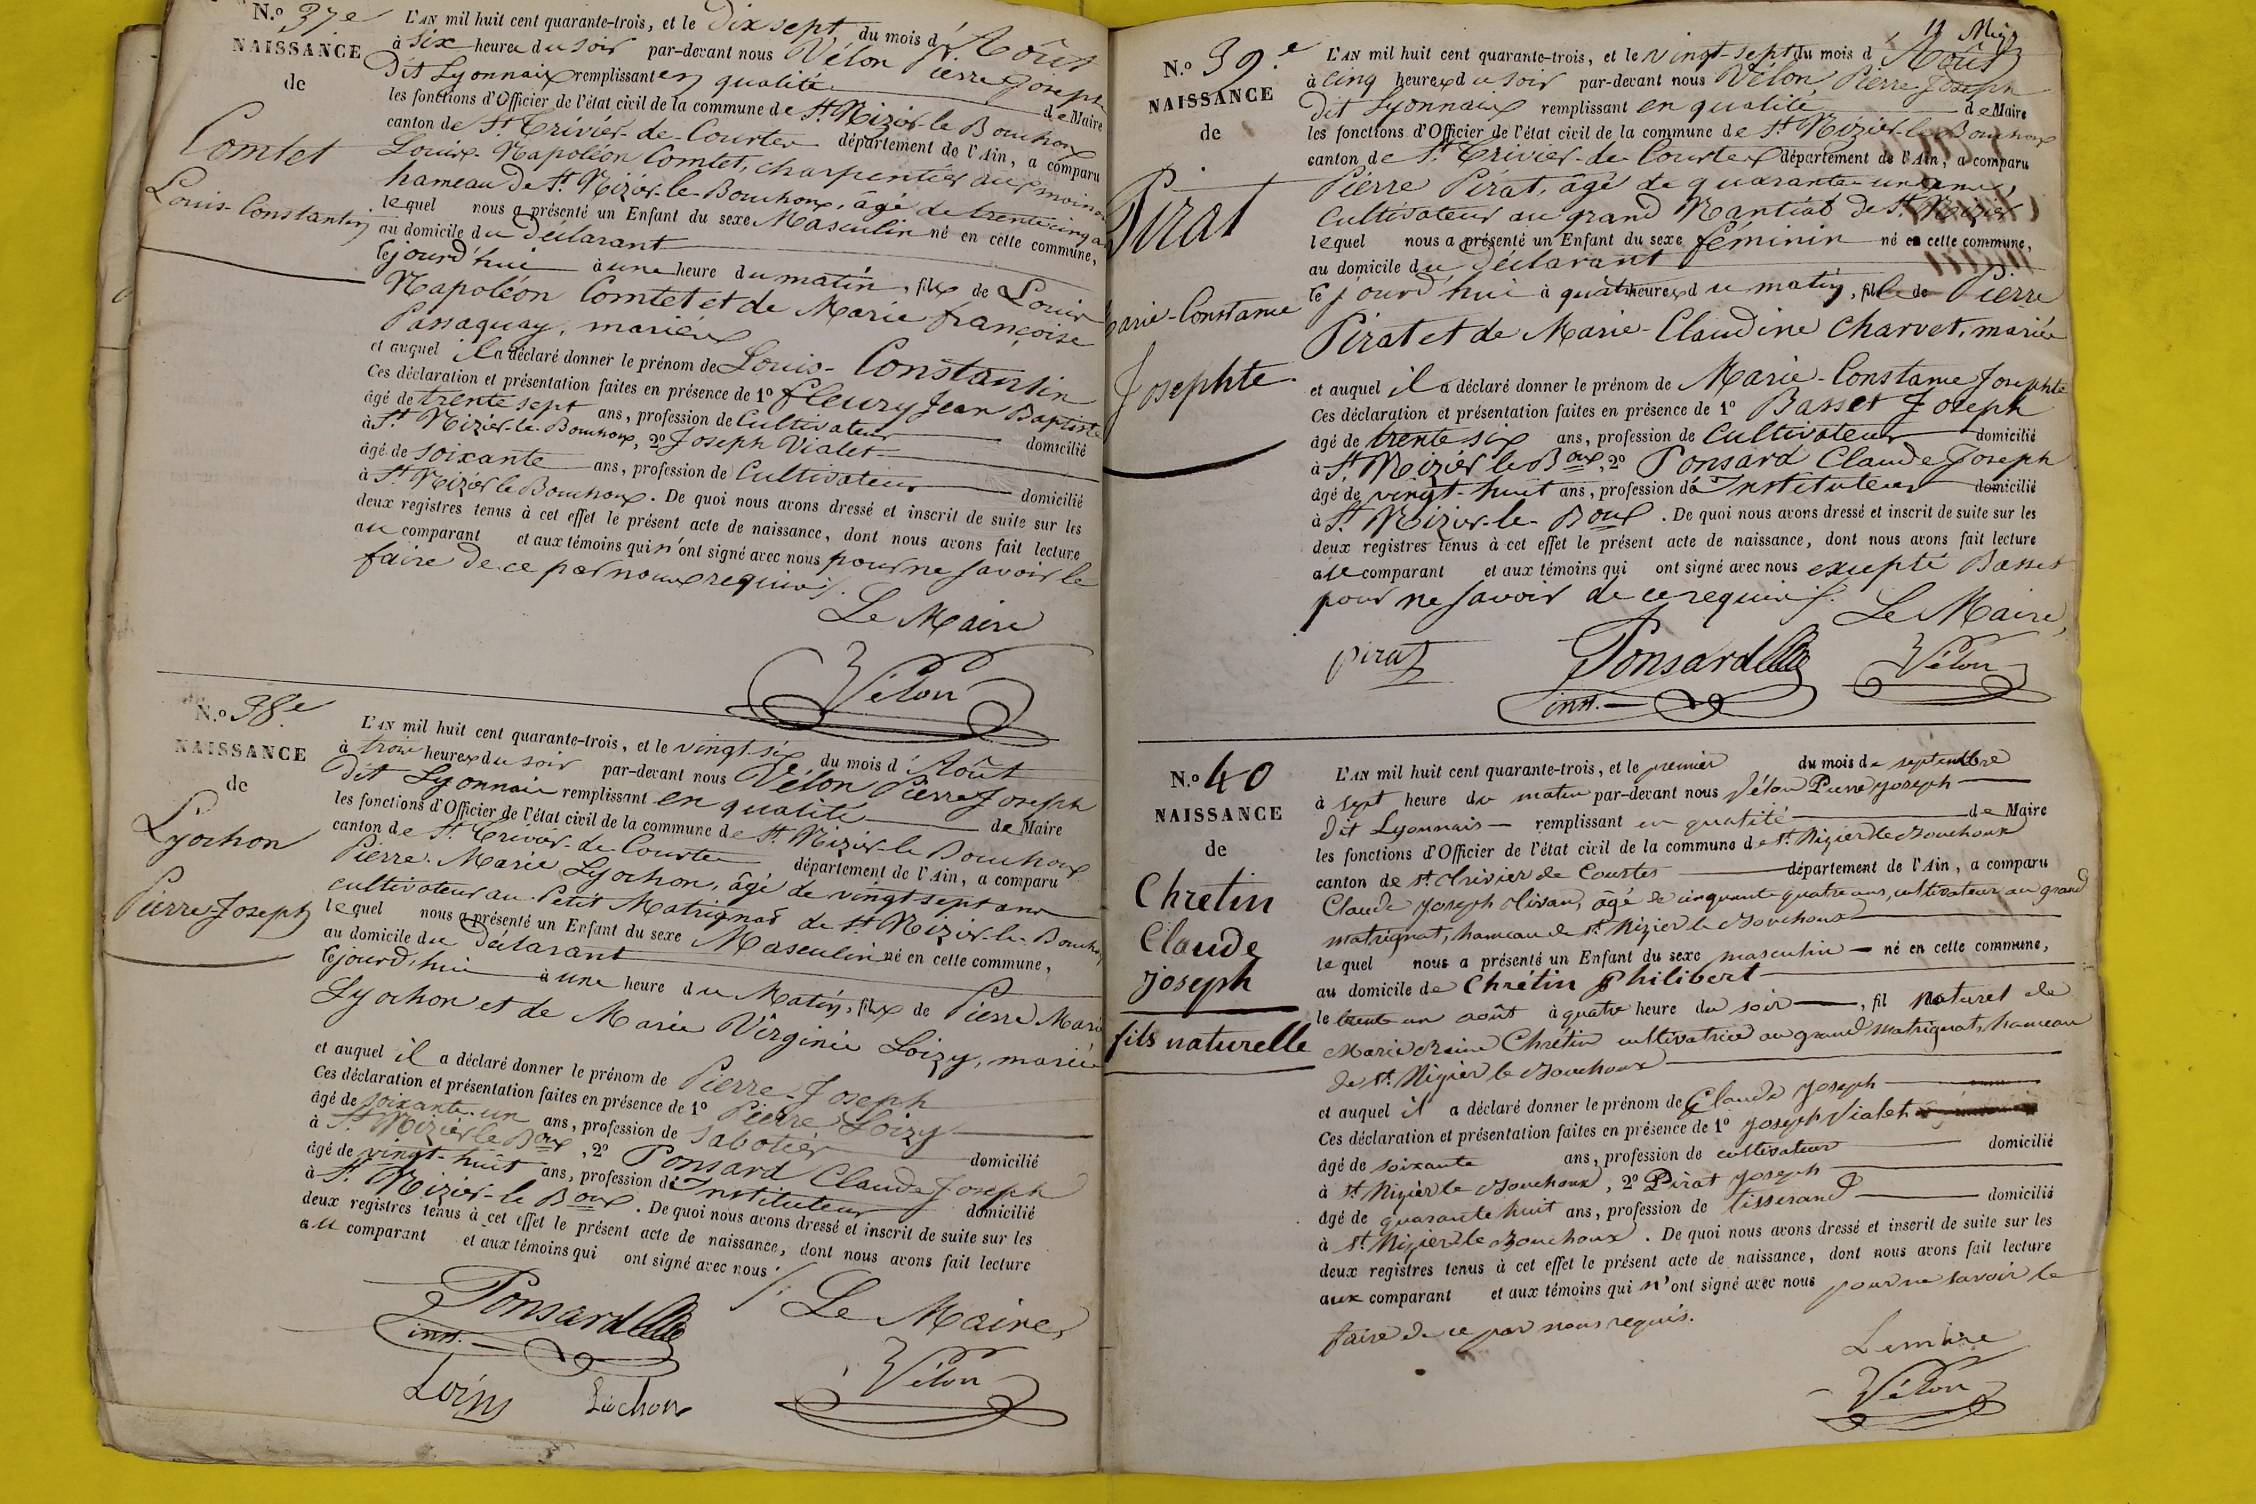 N.º 37e
NAISSANCE
de
Comtet
Louis-Constantin
L'AN mil huit cent quarante-trois, et le dix sept du mois d'Août
à six heures du soir par-devant nous Vélon Pierre Joseph
dit Lyonnais remplissant en qualité de Maire
les fonctions d'Officier de l'état civil de la commune de St. Nizier le Bouchoux
canton de St. Trivier-de-Courtes département de l'Ain, a comparu
Louis-Napoléon Comtet, charpentier au
hameau de St. Nizier-le-Bouchoux, âgé de trente cinq ans
lequel nous a présenté un Enfant du sexe Masculin né en cette commune,
au domicile du déclarant
cejourd'hui à une heure du matin, fils de Louis
Napoléon Comtet et de Marie françoise
Passaquay, mariés
et auquel il a déclaré donner le prénom de Louis-Constantin
Ces déclaration et présentation faites en présence de 1º fleury Jean Baptiste
âgé de trente sept ans, profession de Cultivateur domicilié
à St. Nizier-le-Bouchoux, 2º Joseph Vialet
âgé de soixante ans, profession de Cultivateur domicilié
à St. Nizier le Bouchoux. De quoi nous avons dressé et inscrit de suite sur les
deux registres tenus à cet effet le présent acte de naissance, dont nous avons fait lecture
au comparant et aux témoins qui n'ont signé avec nous pour ne savoir le
faire de ce par nous requis.
Le Maire
Vélon
N.º 38e
NAISSANCE
de
Lyochon
Pierre Joseph
L'AN mil huit cent quarante-trois, et le vingt six du mois d'Août
à trois heures du soir par-devant nous Vélon Pierre Joseph
dit Lyonnais remplissant en qualité de Maire
les fonctions d'Officier de l'état civil de la commune de St. Nizier-le Bouchoux
canton de St. Trivier-de-Courtes département de l'Ain, a comparu
Pierre-Marie Lyochon, âgé de vingt sept ans
cultivateur au Petit Matrignat de St. Nizier-le-Bouchoux
lequel nous a présenté un Enfant du sexe Masculin né en cette commune,
au domicile du déclarant
cejourd'hui à une heure du Matin, fils de Pierre Marie
Lyochon et de Marie Virginie Loizy, mariés
et auquel il a déclaré donner le prénom de Pierre-Joseph
Ces déclaration et présentation faites en présence de 1º Pierre Loizy
âgé de soixante-un ans, profession de Sabotier domicilié
à St. Nizier le Boux, 2º Ponsard Claude Joseph
âgé de vingt-huit ans, profession d'Instituteur domicilié
à St. Nizier-le Boux. De quoi nous avons dressé et inscrit de suite sur les
deux registres tenus à cet effet le présent acte de naissance, dont nous avons fait lecture
au comparant et aux témoins qui ont signé avec nous
Le Maire
Ponsard
inst.
Vélon
Loizy Liochon
11 Miz
N.º 39.e
NAISSANCE
de
Pirat
Marie-Constance
Josephte
L'AN mil huit cent quarante-trois, et le vingt-sept du mois d'Août
à cinq heures du soir par-devant nous Vélon, Pierre Joseph
dit Lyonnais remplissant en qualité de Maire
les fonctions d'Officier de l'état civil de la commune de St. Nizier-le-Bouchoux
canton de St. Trivier-de Courtes département de l'Ain, a comparu
Pierre Pirat, âgé de quarante-un ans,
Cultivateur au grand Nantiat de St. Nizier
lequel nous a présenté un Enfant du sexe féminin né en cette commune,
au domicile du déclarant
cejourd'hui à quatre heures du matin, fille de Pierre
Pirat et de Marie-Claudine Charvet, mariés
et auquel il a déclaré donner le prénom de Marie-Constance Josephte
Ces déclaration et présentation faites en présence de 1º Basset Joseph
âgé de trente six ans, profession de Cultivateur domicilié
à St. Nizier le Boux, 2º Ponsard Claude Joseph
âgé de vingt-huit ans, profession d'Instituteur domicilié
à St. Nizier-le-Boux. De quoi nous avons dressé et inscrit de suite sur les
deux registres tenus à cet effet le présent acte de naissance, dont nous avons fait lecture
au comparant et aux témoins qui ont signé avec nous excepté Basset
pour ne savoir de ce requis.
Le Maire,
pirat Ponsard Vélon
inst.
N.º 40
NAISSANCE
de
Chretin
Claude
Joseph
fils naturelle
L'AN mil huit cent quarante-trois, et le premier du mois de septembre
à sept heure du matin par-devant nous Vélon Pierre Joseph
dit Lyonnais remplissant en qualité de Maire
les fonctions d'Officier de l'état civil de la commune de St. Nizier le Bouchoux
canton de St. Trivier de Courtes département de l'Ain, a comparu
Claude Joseph âgé de cinquante quatre ans, cultivateur au grand
matrignat, hameau de St. Nizier le Bouchoux
lequel nous a présenté un Enfant du sexe masculin né en cette commune,
au domicile de Chrétin Philibert
le trente un août à quatre heure du soir, fil naturel de
Marie Reine Chrétin cultivatrice au grand matrignat, hameau
de St. Nizier le Bouchoux
et auquel il a déclaré donner le prénom de Claude Joseph
Ces déclaration et présentation faites en présence de 1º Joseph Vialet
âgé de soixante ans, profession de cultivateur domicilié
à St. Nizier le Bouchoux, 2º Pirat Joseph
âgé de quarante huit ans, profession de tisserand domicilié
à St. Nizier le Bouchoux. De quoi nous avons dressé et inscrit de suite sur les
deux registres tenus à cet effet le présent acte de naissance, dont nous avons fait lecture
aux comparant et aux témoins qui n'ont signé avec nous pour ne savoir le
faire de ce par nous requis.
Le maire
Vélon